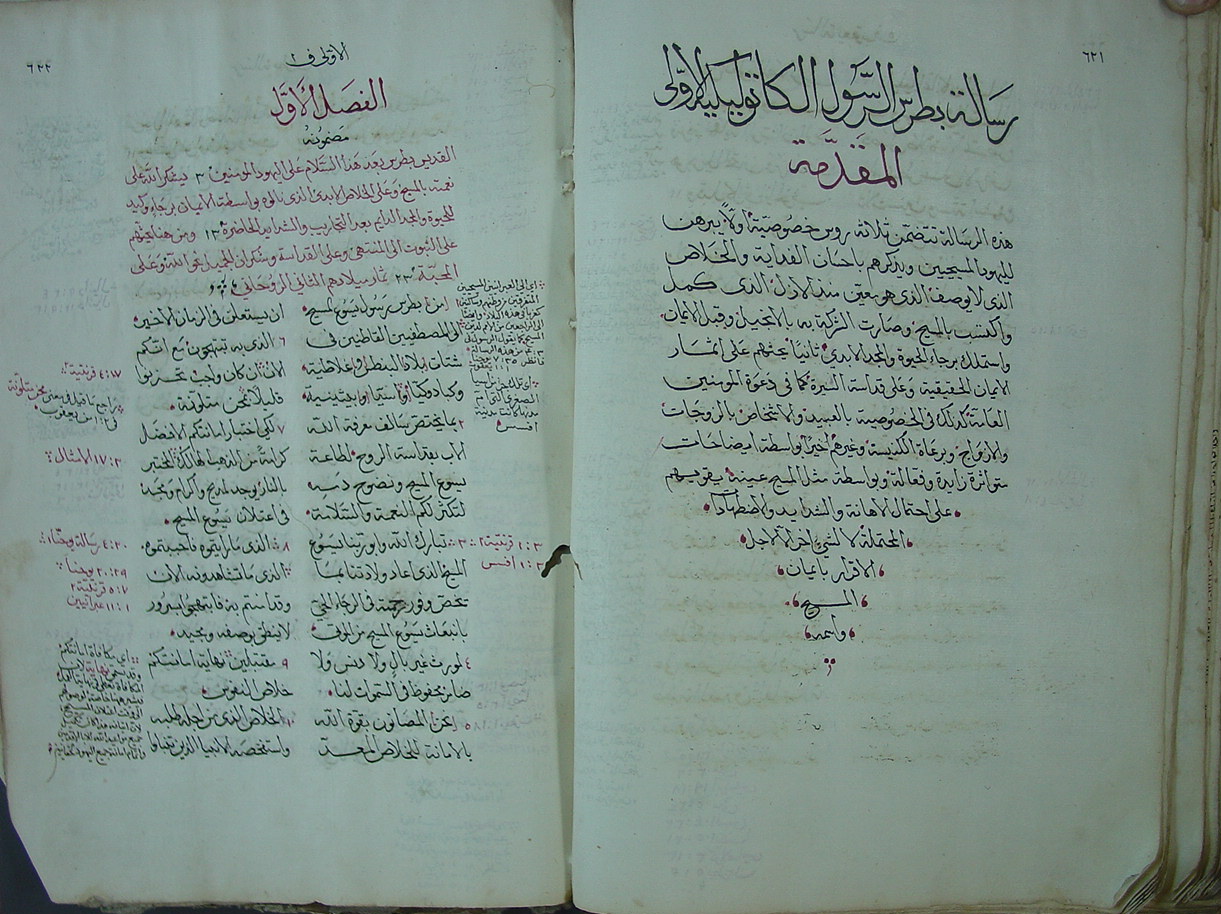 ٦٢١
رسالة بطرس الرسول الكاتوليكيه الاولى
المقدمة
هذه الرسالة تتضمن ثلاثة روس خصوصية اولاً يبرهن
لليهود المسيحيين ويذكرهم باحسان الفداية والخلاص
الذى لا يوصف الذى هو معين منذ الازل الذى كمل
واكتسب بالمسيح وصارت الشركة به بالانجيل وقبل الايمان
واستملك برجاء الحيوة والمجد الابدى ثانياً يحثهم على اثمار
الايمان الحقيقية وعلى قداسة السيرة كما فى دعوة المومنين
العامة كذلك فى الخصوصية بالعبيد والاشخاص بالزوجات
والازواج وبرعاة الكنيسة وغيرهم اخيراً بواسطة ايضاحات
متواترة زايدة وفعالة وبواسطة مثل المسيح عينه يقويهم
على احتمال الاهانة والشدايد والاضطهاد
المحتملة لا لشى اخر الا لاجل
الاقرار بايمان
المسيح
واسمه
٦٢٢
الاولى ف ١
الفصل الاول
مضمونه
القديس بطرس بعد هذا السلام على اليهود المومنين ٣ يشكر الله على
نعمته بالمسيح وعلى الخلاص الابدى الذى نالوه بواسطة الايمان برجاء وكيد
للحيوة والمجد الدايم بعد التجارب والشدايد الحاضرة ١٣ ومن هنا يحثهم
على الثبوت الى المنتهى وعلى القداسة وشكران الجميل نحو الله وعلى
المحبة ٢٣ ثمار ميلادهم الثانى الروحانى
١ من بطرس رسول يسوع المسيح
الى المصطفيين القاطنين فى
شتات بلاد البنطس وغلاطية
وكبادوكيا واسيا وبيثينية
٢ بما يختص بسالف معرفة الله
الاب بقداسة الروح لطاعة
يسوع المسيح ونضوح دمه
لتكثر لكم النعمة والسلامة
٣ تبارك الله وابو ربنا يسوع
المسيح الذى اعاد ولادتنا بما
تخص وفور رحمته فى الرجاء الحى
بانبعاث يسوع المسيح من الموتى
٤ لورث غير بالٍ ولا دنس ولا
ضامر محفوظ فى السموات لنا
٥ نحن المصانون بقوة الله
بالامانة للخلاص المعد
ان يستعلن فى الزمان الاخير
٦ الذى به تبتهجون مع انكم
الان ان كان واجب تحزنوا
قليلاً بمحن متلونة
٧ لكى اختبار امانتكم الافضل
كرامة من الذهب الهالك المختبر
بالنار يوجد لمديح واكرام ومجد
فى اعتلان يسوع المسيح
٨ الذى ما رايتموه فاحببتموه
الذى ما تشاهدونه الان
وقد امنتم به فابتهجوا بسرور
لا ينطق بوصفه ومجيد
٩ مقتبلين نهاية امانتكم
خلاص النفوس
١٠ الخلاص الذى من اجله طلب
واستفحصه الانبيا الذين تنباوا
اى الى العبرانيين المسيحيين
١:٣ قرنتية ٢
١:٣ افسس
٤:١٧ قرنتية ٢
١٧:٣ الامثال
٤:٢٠ رسالة يوحنا ١
٢٠:٢٩ يوحنا
٥:٧ قرنتية ٢
١١:١ عبرانيين